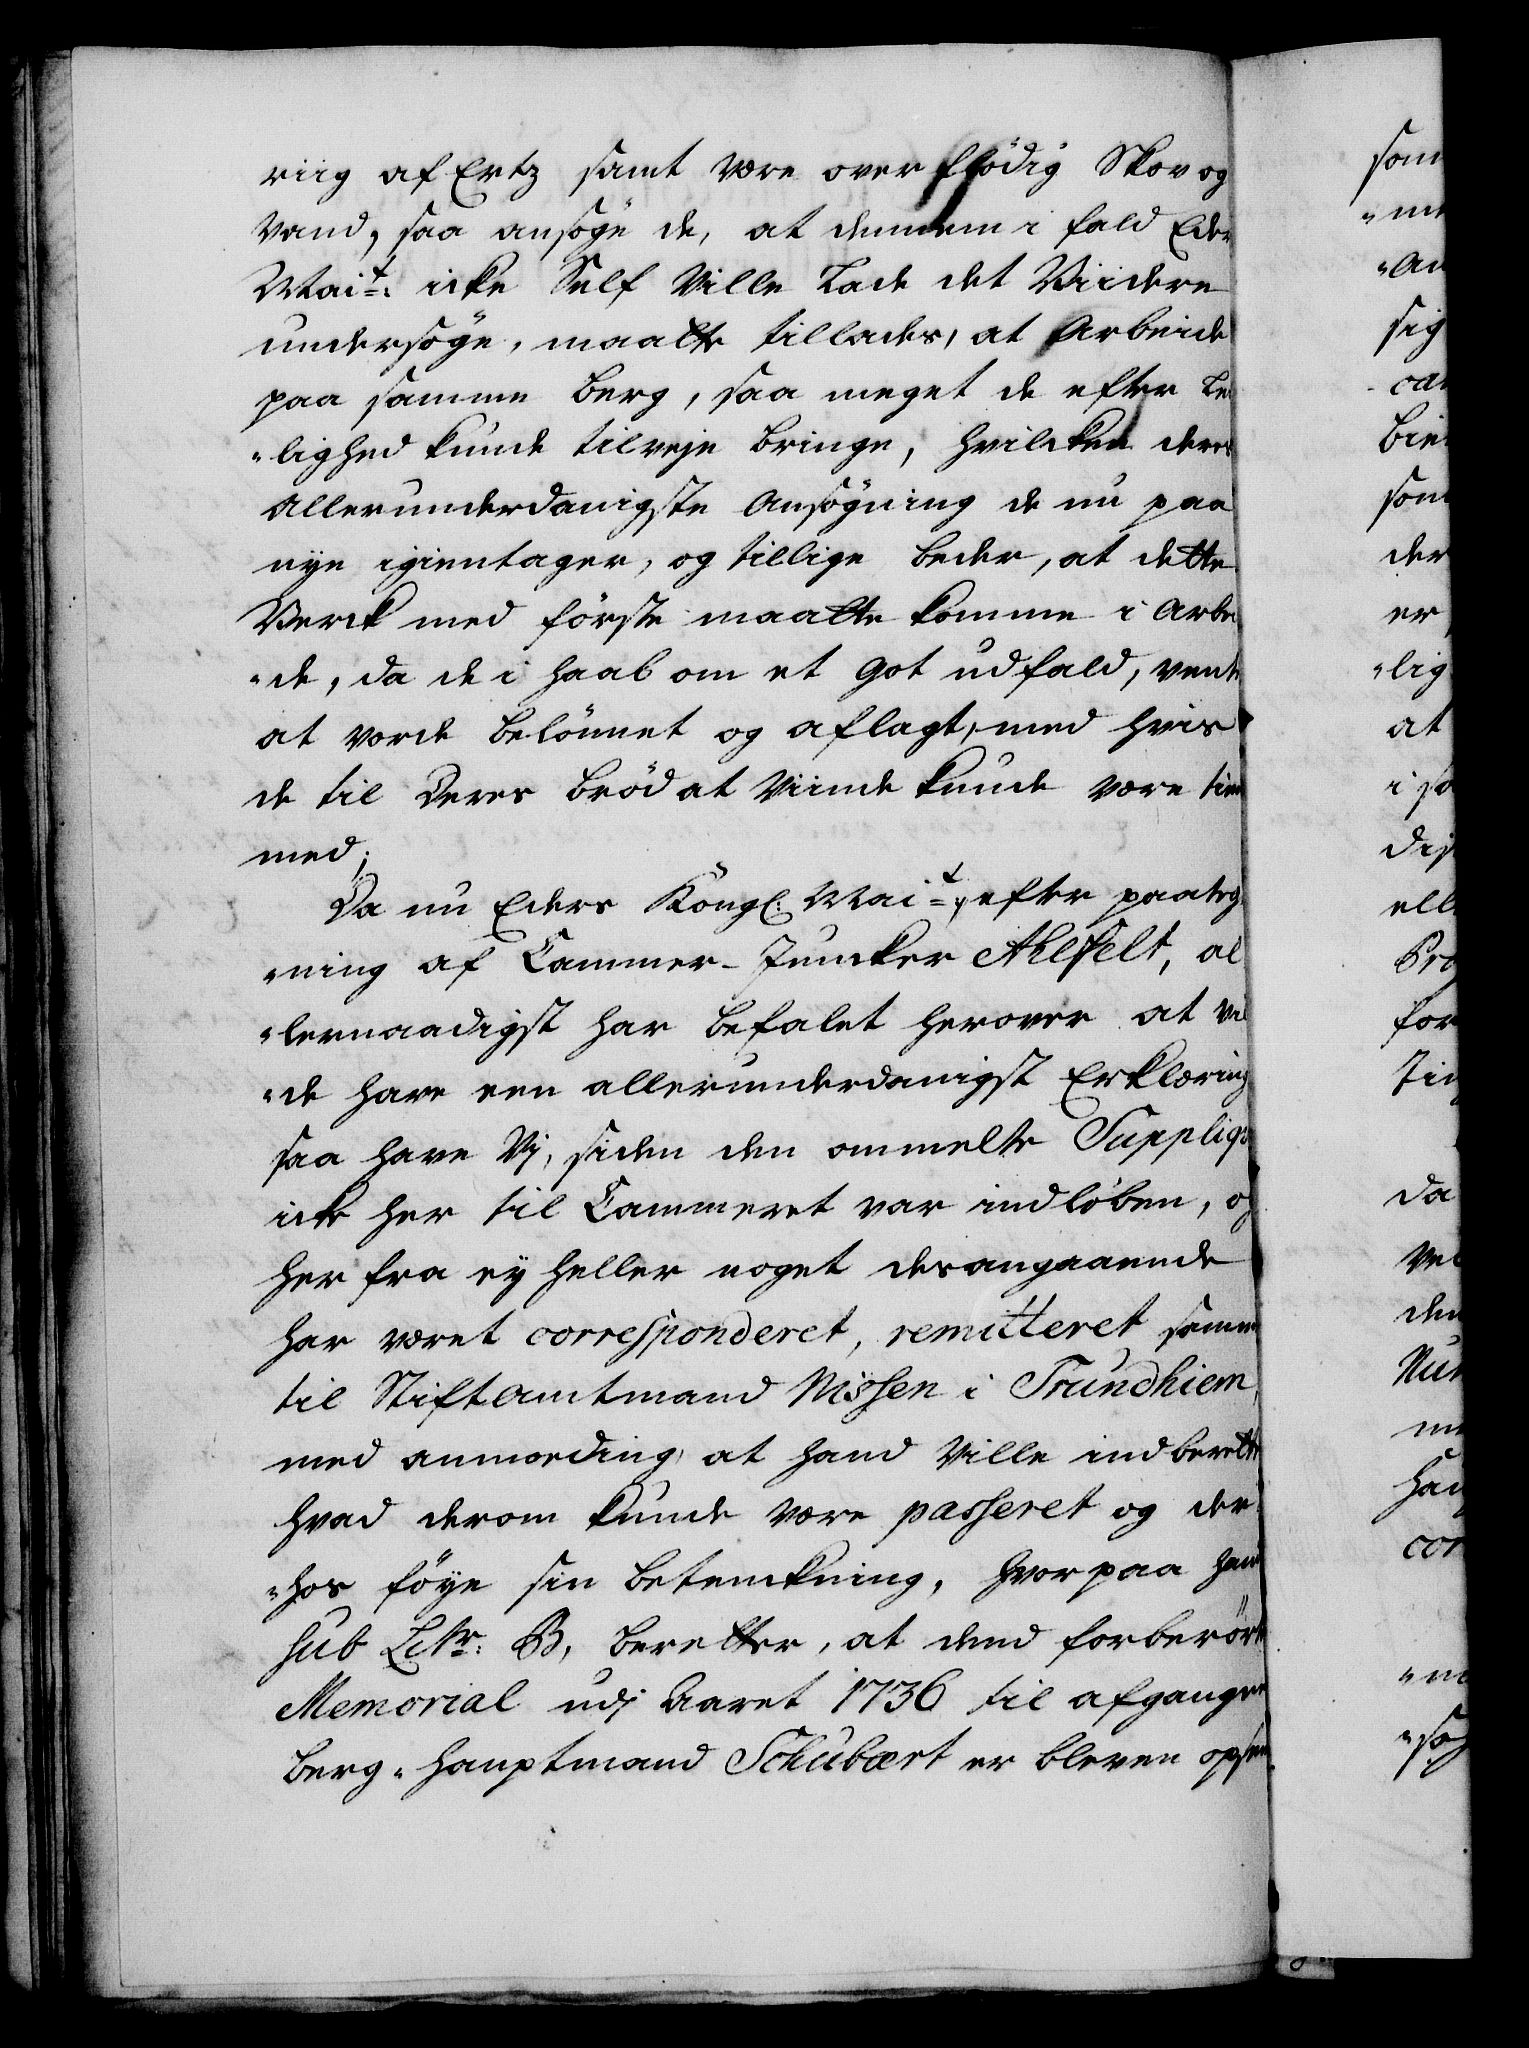 riig af Ertz samt være overflödig Skov og
Vand, saa ansøge de, at dennem i fald Eder
Mai:t icke Self Ville Lade det Viidere
undersøge, maatte tillades, at Arbeide
paa samme berg, saa meget de efter Le
"lighed kunde tilveje bringe, hvilcken deres
allerunderdanigste Ansøgning de nu paa
nye igientager, og tillige beder, at dette
Verck med første maatte komme i Arbe
"de, da de i haab om et Got udfald, vente
at vorde belönnet og aflagt, med hvis
de til Deres bröd at Viinde kunde være tien
med;
Da nu Eders Köngl: Mai:t, efter paateg
"ning af Cammer-Juncker Ahlefelt, al
"lernaadigst har befalet herover at vil
"de have een allerunderdanigst Erklæring
saa have Vj, siden den ommelte Suppliqve
icke her til Cammeret var indløben, og
her fra ey heller noget desangaaende
har været correspenderet, remitteret samme
til Stiftamtmand Nissen i Trundhiem,
med anmoding, at hand Ville indberette
hvad derom kunde være passeret og der
"hos föye sin betenckning, hvorpaa hand
sub Litr: B, beretter, at dend forberörte
Memorial udj Aaret 1736 til afgangne
berg-hauptmand Schubært er bleven opsen
som
sig
som
der
er
"lig
at
da
for